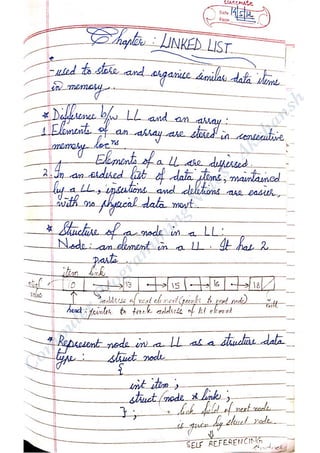 classmate
Date
Page
Chapter : LINKED LIST
- used to store and organise similar data items
in memory.
* Difference b/w LL and an array:
1. Elements of an array are stored in consecutive
memory locns
Elements of a LL are dispersed.
2. In an ordered list of data items, maintained
by a LL, insertions and deletions are easier,
with no physical data mvnt.
* Structure of a node in a LL:
Node: an element in a LL. It has 2
parts:
item link
0 13 15 16 18
address of next element (pointer to next node)
null
head: pointer to address of 1st element
* Represent node in a LL as a structure data
type: struct node
{
int item ;
struct node *link ;
} ;
• link field of next node
is given by struct node.
SELF REFERENCING